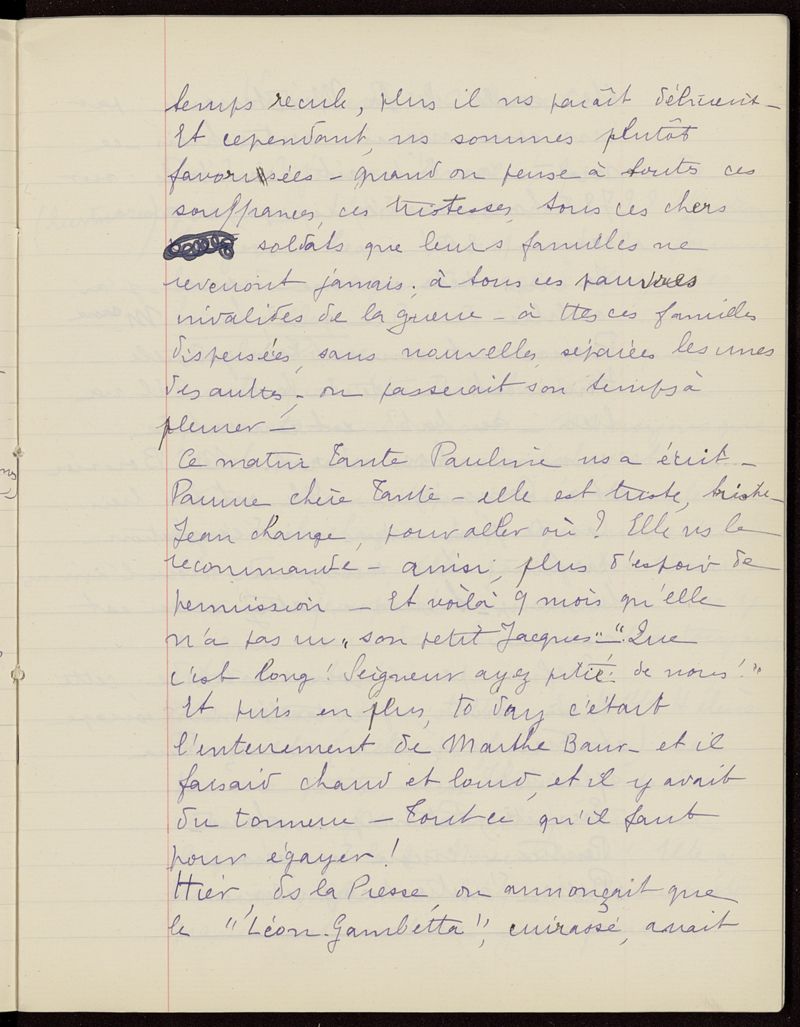 temps recule, plus il ns paraît
Et cependant, ns sommes plutôt
favorisées – quand on pense à toutes ces
souffrances, ces tristesses, tous ces chers
soldats que leurs familles ne
reverront jamais; à tous ces pauvres
invalides de la guerre – à ttes ces familles
dispersées, sans nouvelles, séparées les unes
des autres; on passerait son temps à
pleurer –
Ce matin Tante Pauline ns a écrit –
Pauvre chère Tante – elle est triste, triste –
Jean change, pour aller où ? Elle ns le
recommande – ainsi, plus d'espoir de
permission – Et voilà 9 mois qu'elle
n'a pas vu "son petit Jacques" – "Que
c'est long ! Seigneur ayez pitié de nous !"
Et puis en plus, to day c'était
l'enterrement de Marthe Baur – et il
faisaid chaud et lourd, et il y avait
du tonnerre – Tout ce qu'il faut
pour égayer !
Hier, ds la Presse, on annonçait que
le "Léon-Gambetta", cuirassé, avait